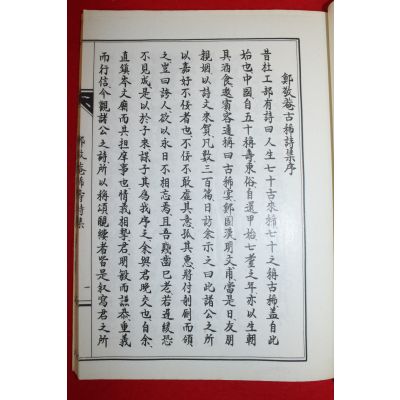 鄭敬菴古稀詩集序
昔杜工部有詩曰人生七十古來稀七十之稱古稀盖自此
始也中國自五十稱壽東俗自還甲始七耋之年亦以生朝
具酒食邀賓客遠稱曰古稀宴鄭國漢明文甫當是日友朋
親姻以詩文來賀凡數三百篇日訪余示之曰此諸公之
以嘉好不侫者也不侫不敢虛其意孤其惠將付剞劂而頒
之豈曰誇人欲以永日不相忘焉且吾髮齒已老若遲緩恐
不見成是以於子來謀子其為我序之余與君晩交也自余
直鎮岑文廟而共担庠事也情義相孚君朋敏而謙恭重義
而行信今觀諸公之詩所以稱頌覼縷者皆是叙寫君之所
鄭敬菴稀宵詩集
一